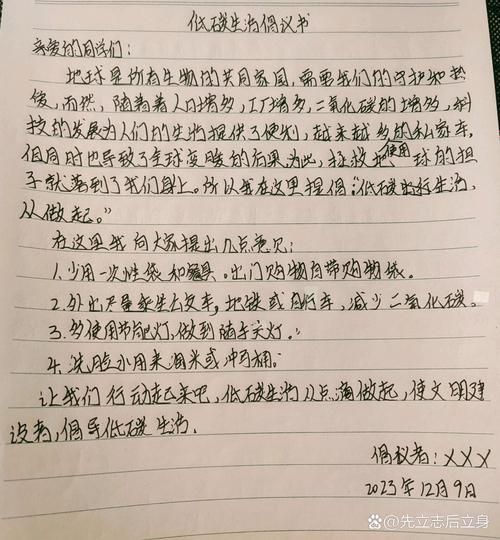 低碳生活倡议书
亲爱的同学们：
地球是所有生物的共同家园，需要我们的守护和热
爱，而然，随着着人口增多，工厂增多，二氧化碳的增多，科
技的发展为人们的生活提供了便利，越来越多的私家车，
但同时也导致了全球变暖的后果为此，拯救地使用球的担
子就落到了我们身上。所以我在这里提倡："低碳出行生活，
从做起。"
在这里我向大家提出几点意见：
1.少用一次性袋和餐具。出门购物自带购物袋。
2.外出尽量乘坐公交车，地铁或自行车，减少二氧化碳。
3.多使用节能灯，做到随手关灯。
4.洗脸水用来淘米或冲马桶。
让我们行动起来吧，低碳生活从点滴做起，使文明建
设者，倡导低碳生活。
倡议者：XXX
2023年12月9日
@先立志后立身